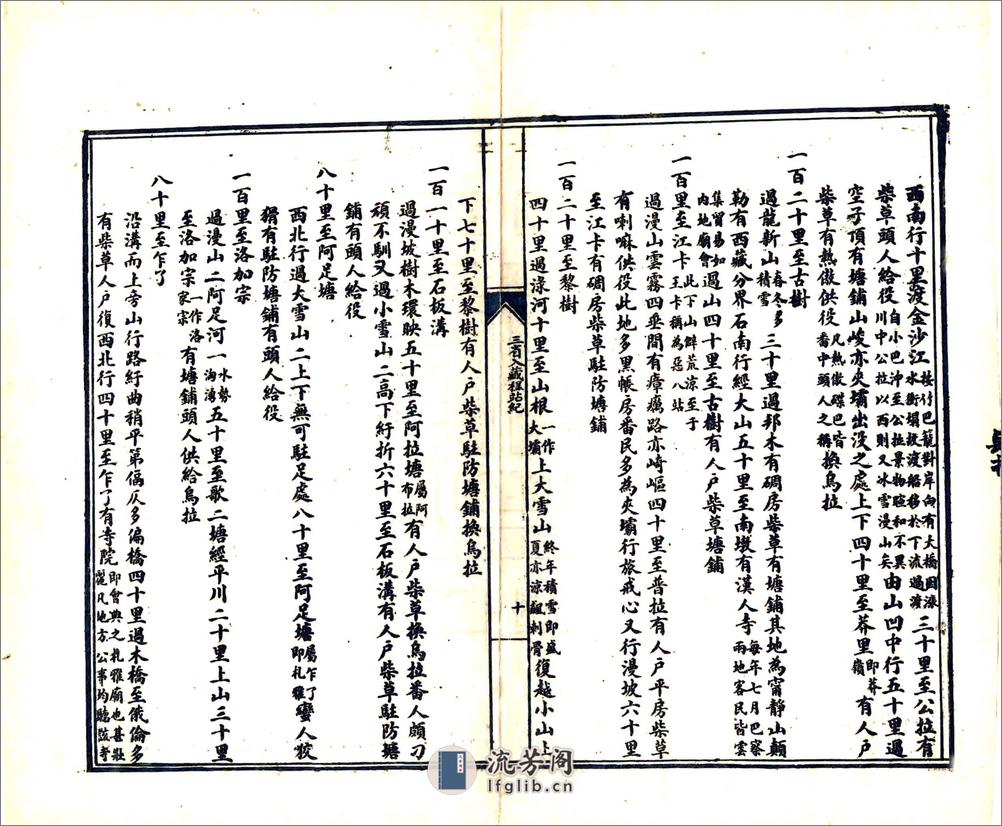 西南行十里渡金沙江按竹巴籠對岸向有大橋因漲水衝塌設渡船移於下流過渡三十里至公拉有
柴草頭人給役自小巴沖至公拉景物暄和不異川中公拉以西則又冰雪漫山矣由山凹中行五十里過
空子頂有塘鋪山峻亦夾壩出没之處上下四十里至莽里即莽嶺有人户
柴草有熱傲供役凡熱傲碟巴皆番中頭人之稱換烏拉
一百二十里至古樹
過龍新山春冬多積雪三十里過邦木有碉房柴草有塘鋪其地為甯靜山顛
勒有西藏分界石南行經大山五十里至南墩有漢人寺每年七月巴察兩地客民皆雲
集貿易如内地廟會過山四十里至古樹有人户柴草塘鋪
一百里至江卡此下山鮮荒涼至于王卡稱為惡八站
過漫山雲霧四垂間有瘴癘路亦崎嶇四十里至普拉有人户平房柴草
有喇嘛供役此地多黑帳房番民多為夾壩行旅戒心又行漫坡六十里
至江卡有碉房柴草駐防塘鋪
一百二十里至黎樹
四十里過淥河十里至山根一作大壩上大雪山終年積雪即盛夏亦涼飆刺骨復越小山上
三省入藏程站紀
十
下七十里至黎樹有人户柴草駐防塘鋪換烏拉
一百一十里至石板溝
過漫坡樹木環映五十里至阿拉塘屬阿布拉有人户柴草換烏拉番人頗刁
頑不馴又過小雪山二高下紆折六十里至石板溝有人户柴草駐防塘
鋪有頭人給役
八十里至阿足塘
西北行過大雪山二上下無可駐足處八十里至阿足塘屬乍了即札雅蠻人狡
猾有駐防塘鋪有頭人給役
一百里至洛加宗
過漫山二阿足河一水勢洶湧五十里至歌二塘經平川二十里上山三十里
至洛加宗一作洛家宗有塘鋪頭人供給烏拉
八十里至乍了
沿溝而上旁山行路紆曲稍平第偪仄多偏橋四十里過木橋至俄倫多
有柴草人户復西北行四十里至乍了有寺院即會典之札雅廟也甚壯麗凡地方公事均聽該寺